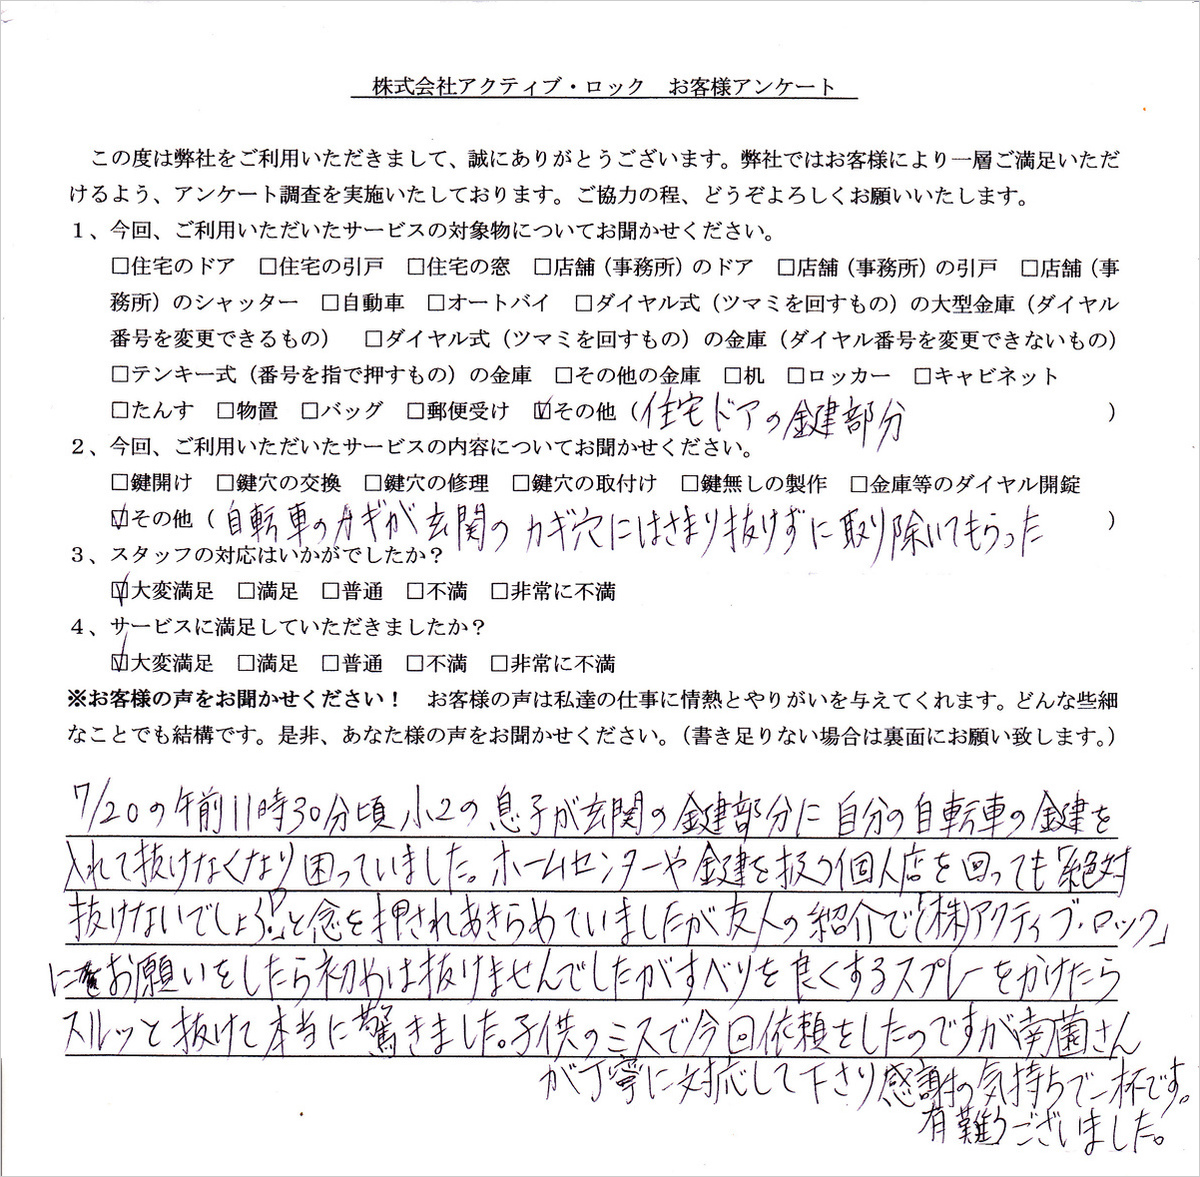 株式会社アクティブ・ロック　お客様アンケート
この度は弊社をご利用いただきまして、誠にありがとうございます。弊社ではお客様により一層ご満足いただ
けるよう、アンケート調査を実施いたしております。ご協力の程、どうぞよろしくお願いいたします。
１、今回、ご利用いただいたサービスの対象物についてお聞かせください。
□住宅のドア　□住宅の引戸　□住宅の窓　□店舗（事務所）のドア　□店舗（事務所）の引戸　□店舗（事
務所）のシャッター　□自動車　□オートバイ　□ダイヤル式（ツマミを回すもの）の大型金庫（ダイヤル
番号を変更できるもの）　□ダイヤル式（ツマミを回すもの）の金庫（ダイヤル番号を変更できないもの）
□テンキー式（番号を指で押すもの）の金庫　□その他の金庫　□机　□ロッカー　□キャビネット
□たんす　□物置　□バッグ　□郵便受け　☑その他（住宅ドアの鍵部分　）
２、今回、ご利用いただいたサービスの内容についてお聞かせください。
□鍵開け　□鍵穴の交換　□鍵穴の修理　□鍵穴の取付け　□鍵無しの製作　□金庫等のダイヤル開錠
☑その他（自転車のカギが玄関のカギ穴にはさまり抜けずに取り除いてもらった　）
３、スタッフの対応はいかがでしたか？
☑大変満足　□満足　□普通　□不満　□非常に不満
４、サービスに満足していただきましたか？
☑大変満足　□満足　□普通　□不満　□非常に不満
※お客様の声をお聞かせください！　お客様の声は私達の仕事に情熱とやりがいを与えてくれます。どんな些細
なことでも結構です。是非、あなた様の声をお聞かせください。（書き足りない場合は裏面にお願い致します。）
7/20の午前11時30分頃小2の息子が玄関の鍵部分に自分の自転車の鍵を
入れて抜けなくなり困っていました。ホームセンターや鍵を扱う個人店を回っても「絶対
抜けないでしょう!?」と念を押されあきらめていましたが友人の紹介で「(株)アクティブ・ロック」
にお願いをしたら初めは抜けませんでしたがすべりを良くするスプレーをかけたら
スルッと抜けて本当に驚きました。子供のミスで今回依頼をしたのですが南薗さん
が丁寧に対応して下さり感謝の気持ちで一杯です。
有難うございました。